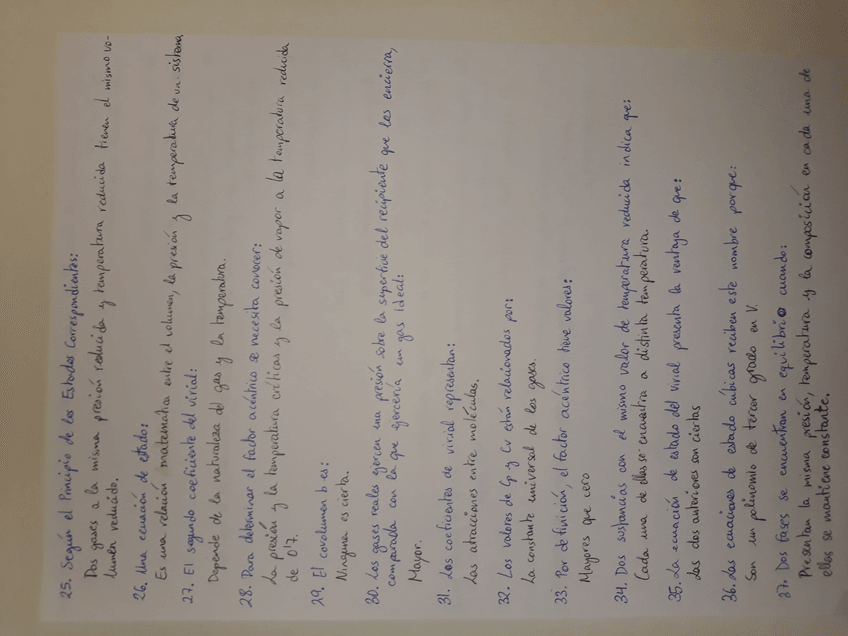 25. Según el Principio de los Estados Correspondientes:
Dos gases a la misma presión reducida y temperatura reducida tienen el mismo vo-
lumen reducido.
26. Una ecuación de estado:
Es una relación matemática entre el volumen, la presión y la temperatura de un sistema
27. El segundo coeficiente del virial:
Depende de la naturaleza del gas y la temperatura.
28. Para determinar el factor acéntrico se necesita conocer:
La presión y la temperatura críticas y la presión de vapor a la temperatura reducida
de 0'7.
29. El covolumen b es:
Ninguna es cierta.
30. Los gases reales ejercen una presión sobre la superficie del recipiente que los encierra,
comparada con la que ejercería un gas ideal:
Mayor.
31. Los coeficientes de virial representan:
Las atracciones entre moléculas.
32. Los valores de Cp y Cv están relacionados por:
La constante universal de los gases.
33. Por definición, el factor acéntrico tiene valores:
Mayores que cero
34. Dos sustancias con el mismo valor de temperatura reducida indica que:
Cada una de ellas se encuentra a distinta temperatura.
35. La ecuación de estado del virial presenta la ventaja de que:
Las dos anteriores son ciertas
36. Las ecuaciones de estado cúbicas reciben este nombre porque:
Son un polinomio de tercer grado en V.
37. Dos fases se encuentran en equilibrio cuando:
Presentan la misma presión, temperatura y la composición en cada una de
ellas se mantiene constante.